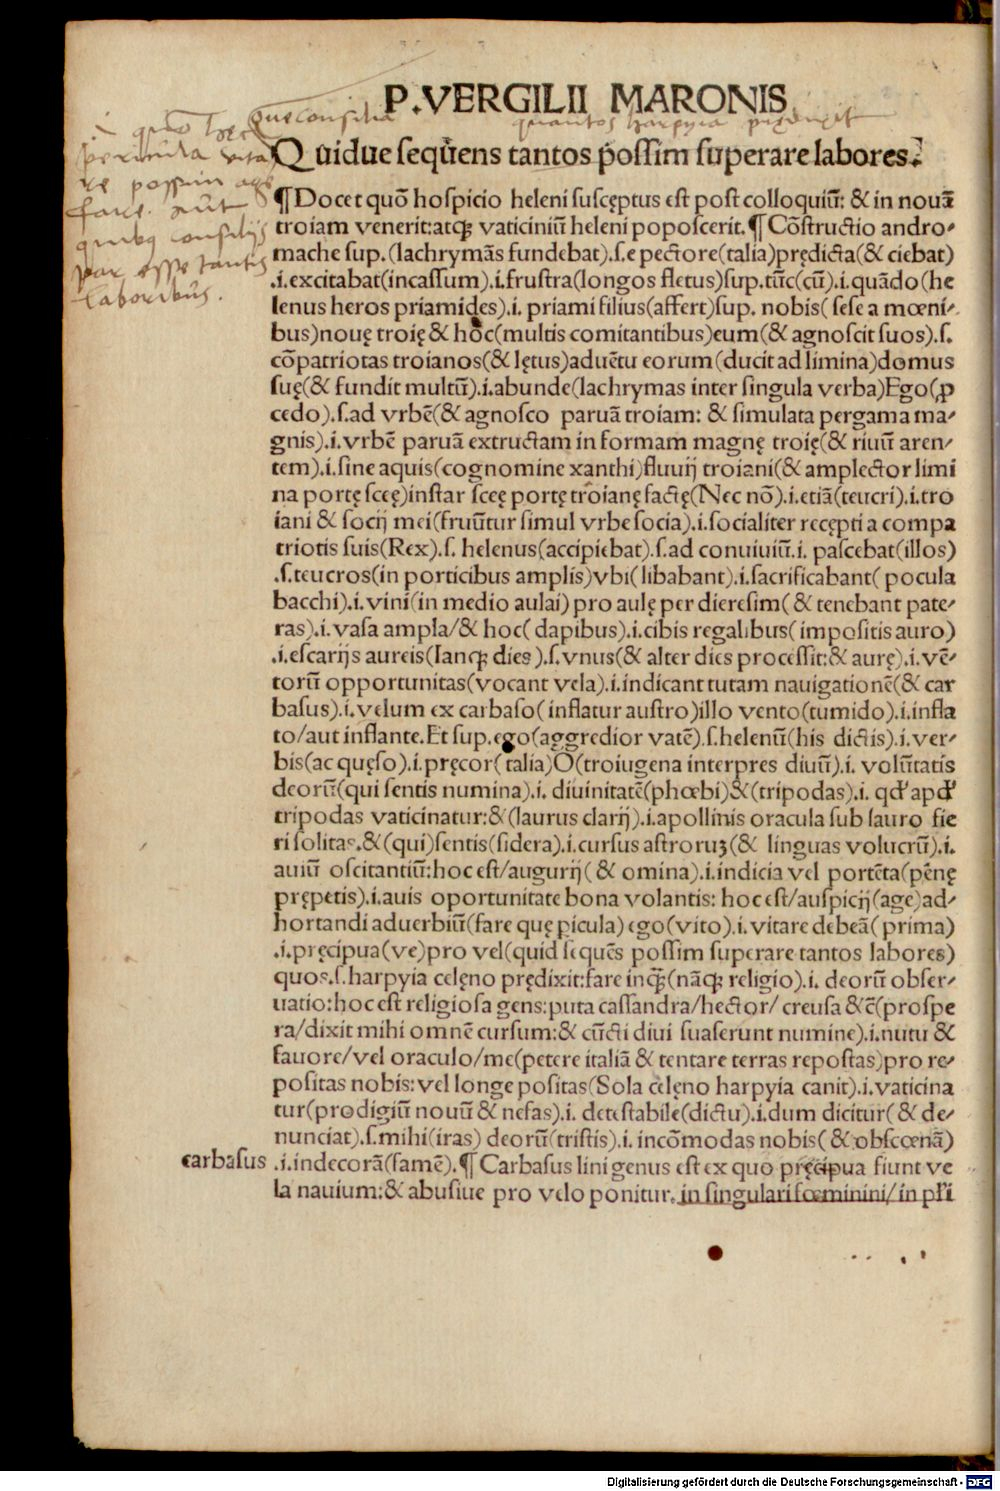 P.VERGILII MARONIS
que consilia
quantos harpyia prędixit
.i. quõ hęc
pericula vita
re possim age
fare. aut
quibꝯ consilijs
par esse tantis
laboribus.
Quidue sequēns tantos possim superare labores?
¶Docet quõ hospicio heleni susceptus est post colloquiũ: & in nouã
troiam venerit:atqꝫ vaticiniũ heleni poposcerit.¶Cõstructio andro⸗
mache sup.(lachrymãs fundebat).s.e pectore(talia)prędicta(& ciebat)
.i.excitabat(incassum).i.frustra(longos fletus)sup.tũc(cũ).i.quãdo(he
lenus heros priamides).i. priami filius(affert)sup. nobis(sese a mœni⸗
bus)nouę troię & hoc(multis comitantibus)eum(& agnoscit suos).s.
cõpatriotas troianos(& lętus)aduẽtu eorum(ducit ad limina)domus
suę(& fundit multũ).i.abunde(lachrymas inter singula verba)Ego(ꝓ
cedo).s.ad vrbẽ(& agnosco paruã troiam: & simulata pergama ma⸗
gnis).i.vrbẽ paruã extructam in formam magnę troię(& riuũ aren⸗
tem).i.sine aquis(cognomine xanthi)fluuij troiani(& amplector limi
na portę scęę)instar scęę portę troianę factę(Nec nõ).i.etiã(teucri).i.tro
iani & socij mei(fruũtur simul vrbe socia).i.socialiter recepti a compa
triotis suis(Rex).s. helenus(accipiebat).s.ad conuiuiũ.i. pascebat(illos)
.s.teucros(in porticibus amplis)vbi(libabant).i.sacrificabant( pocula
bacchi).i.vini(in medio aulai) pro aulę per dieresim( & tenebant pate⸗
ras).i.vasa ampla/& hoc( dapibus).i.cibis regalibus( impositis auro)
.i.escarijs aureis(Ianqꝫ dies).s.vnus(& alter dies processit:& aurę).i.vẽ⸗
torũ opportunitas(vocant vela).i.indicant tutam nauigationẽ(& car
basus).i.velum ex carbaso(inflatur austro)illo vento(tumido).i.infla
to/aut inflante.Et sup.ego(aggredior vatẽ).s.helenũ(his dictis).i.ver⸗
bis(ac quęso).i.pręcor( talia)O(troiugena interpres diuũ).i. volũtatis
deorũ(qui sentis numina).i. diuinitatẽ(phœbi)&(tripodas).i. qđ apđ
tripodas vaticinatur:&(laurus clarij).i.apollinis oracula sub lauro fie
ri solitas.&(qui)sentis(sidera).i.cursus astroruꝫ(& linguas volucrũ).i.
auiũ oscitantiũ:hoc est/augurij( & omina).i.indicia vel portẽta(pẽnę
prępetis).i.auis oportunitate bona volantis: hoc est/auspicij(age)ad⸗
hortandi aduerbiũ(fare quę picula) ego(vito).i.vitare debeã( prima)
.i.pręcipua(ve)pro vel(quid sequẽs possim superare tantos labores)
quos.s.harpyia celęno prędixit:fare inqꝫ̃(nãqꝫ religio).i. deorũ obser⸗
uatio:hoc est religiosa gens:puta cassandra/hector/ creusa &c̃(prospe
ra/dixit mihi omnẽ cursum:& cũcti diui suaserunt numine).i.nutu &
fauore/vel oraculo/me(petere italiã & tentare terras repostas)pro re⸗
positas nobis:vel longe positas(Sola celęno harpyia canit).i.vaticina
tur(prodigiũ nouũ & nefas).i. detestabile(dictu).i.dum dicitur( & de⸗
nunciat).s.mihi(iras) deorũ(tristis).i. incõmodas nobis( & obscœnã)
carbasus .i.indecorã(famẽ).¶Carbasus lini genus est ex quo pręcipua fiunt ve
la nauium:& abusiue pro velo ponitur. in singulari fœminini/in plĩ
Digitalisierung gefördert durch die Deutsche Forschungsgemeinschaft - DFG